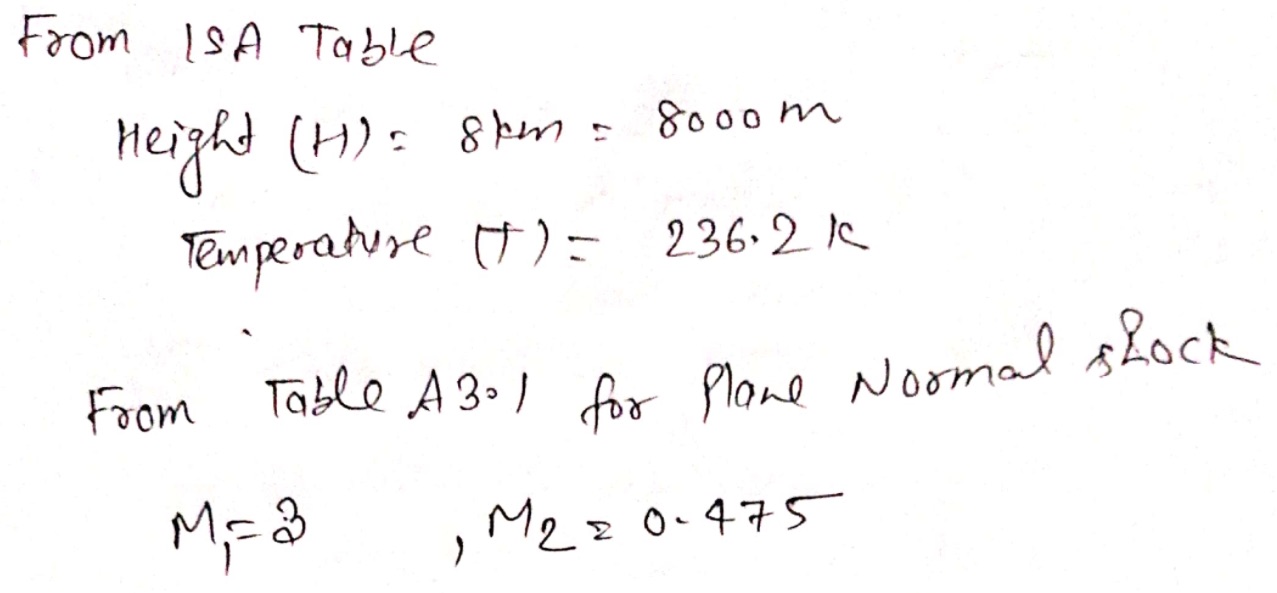 From ISA Table
Height (H) = 8km = 8000 m
Temperature (T) = 236.2 K
From Table A3.1 for Plane Normal shock
M₁=3 , M2 = 0.475